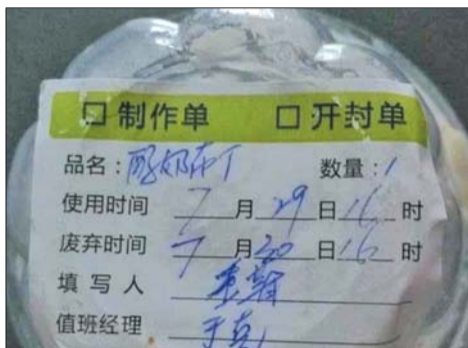 口制作单 口开封单
品名:酸奶布丁 数量:1
使用时间 7月29日16时
废弃时间 7月30日16时
填写人
值班经理